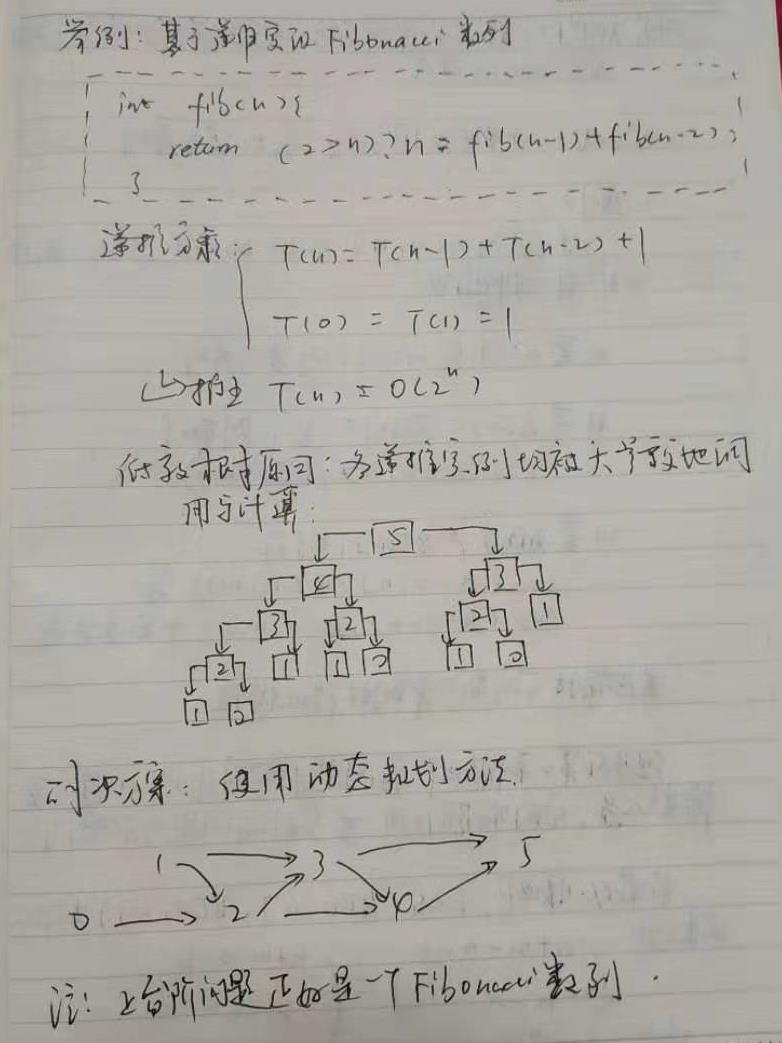 举例：基于递归实现 Fibonacci 数列
int fib(n){
return (2>n)?n = fib(n-1)+fib(n-2);
}
递推方程： T(n) = T(n-1) + T(n-2) + 1
T(0) = T(1) = 1
T(n) = O(2ⁿ)
低效根本原因：各递推实例均被大量重复地调
用与计算：
5
4 3
3 2 2 1
2 1 1 0 1 0
1 0
解决方案：使用动态规划方法.
1 3 5
0 2 4
注：上台阶问题正好是一个 Fibonacci 数列.